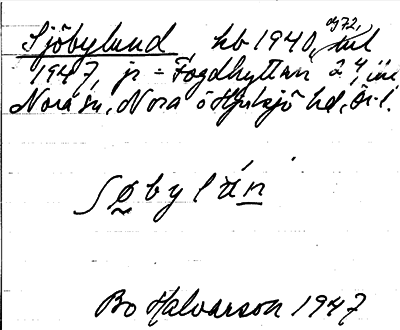 og 72,
Sjöbylund, hb 1940, tul
1947, jr = Fogdhyttan 2 4, i
Nora sn, Nora o Hjulsjö hd, Ör. l.
Søbylún
Bo Halvarson 1947